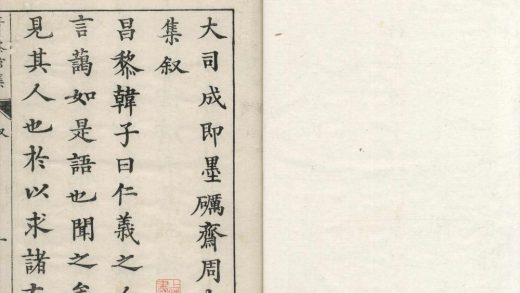 大司成即墨礪齋周
集叙
昌黎韓子曰仁義之人
言藹如是語也聞之矣
見其人也於以求諸古
叙
一